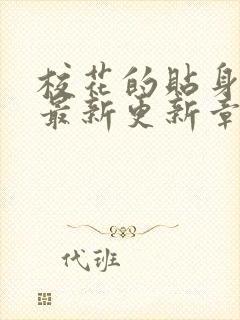 校花的貼身
最新更新章
代班